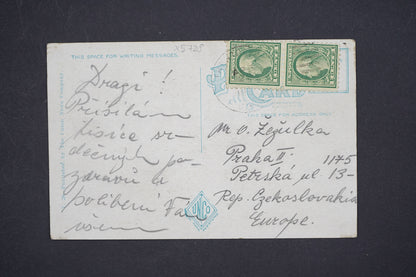 THIS SPACE FOR WRITING MESSAGES.
x5725
Dragí!
Přísílám
tisíce sr-
dečných po-
zdravů a
políbení Vám
všem
CARD
THIS SPACE FOR ADDRESS ONLY
Mr V. Žežulka
Praha II. 1175
Petrská ul 13-
Rep. Czekoslovakia
Europe.